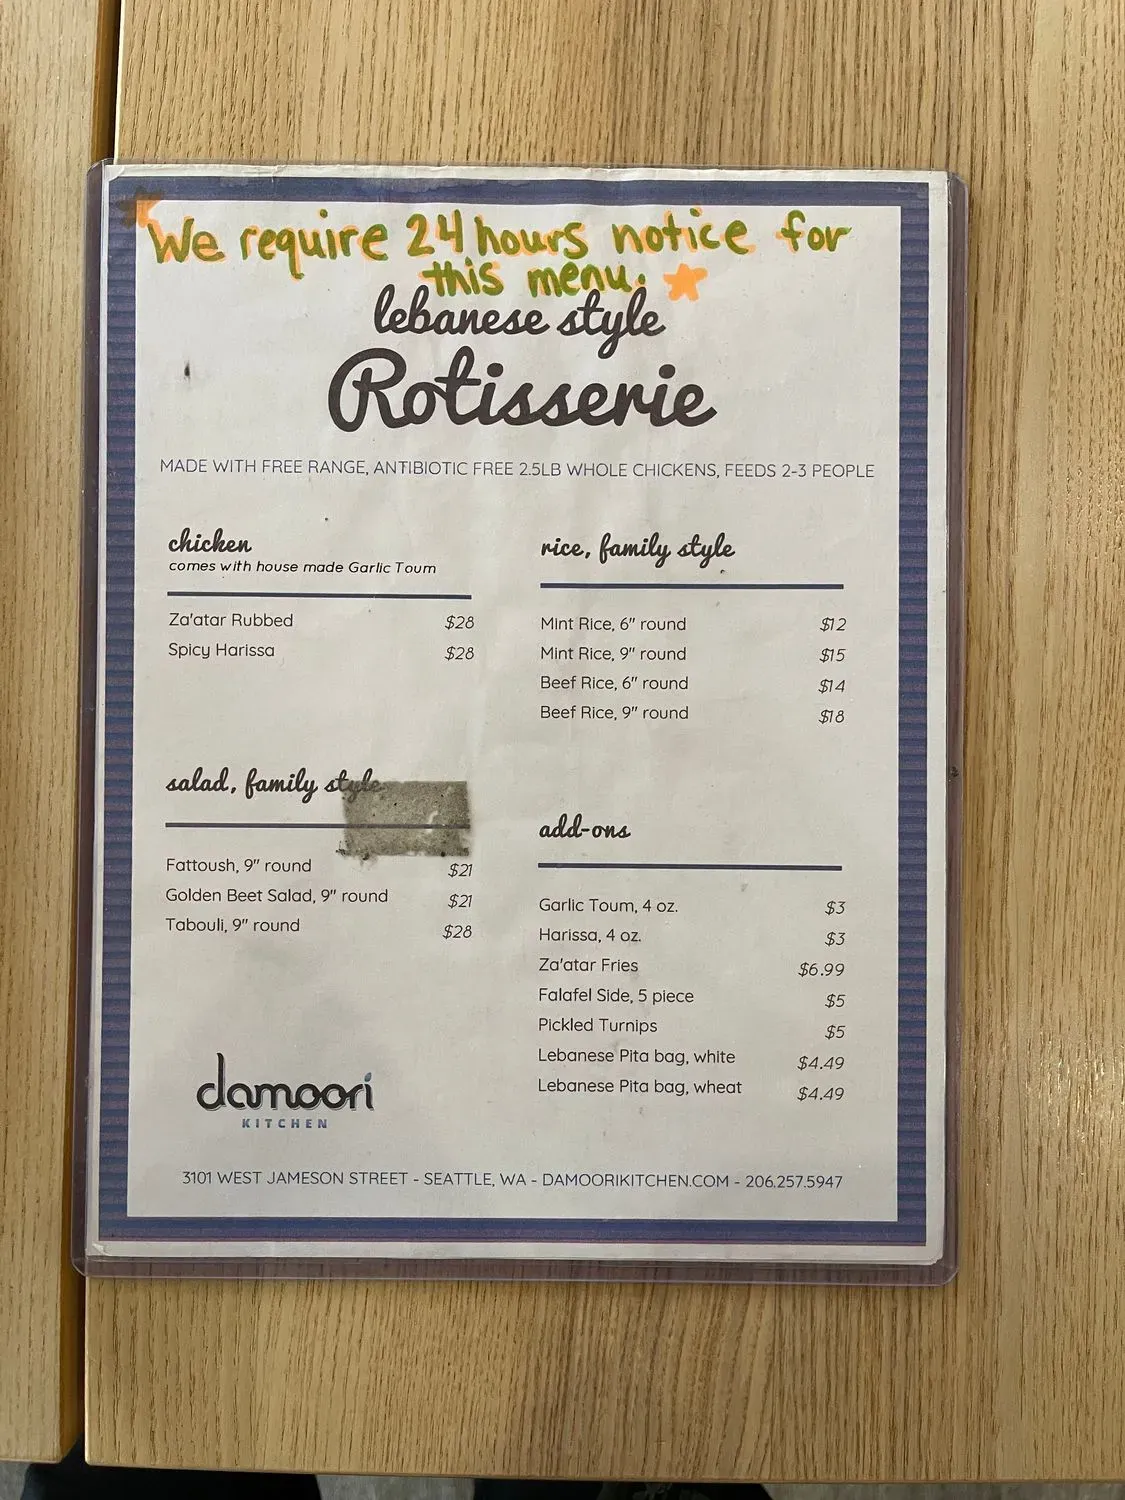 We require 24 hours notice for
this menu.
lebanese style
Rotisserie
MADE WITH FREE RANGE, ANTIBIOTIC FREE 2.5LB WHOLE CHICKENS, FEEDS 2-3 PEOPLE
chicken
comes with house made Garlic Toum
Za'atar Rubbed $28
Spicy Harissa $28
rice, family style
Mint Rice, 6" round $12
Mint Rice, 9" round $15
Beef Rice, 6" round $14
Beef Rice, 9" round $18
salad, family style
Fattoush, 9" round $21
Golden Beet Salad, 9" round $21
Tabouli, 9" round $28
add-ons
Garlic Toum, 4 oz. $3
Harissa, 4 oz. $3
Za'atar Fries $6.99
Falafel Side, 5 piece $5
Pickled Turnips $5
Lebanese Pita bag, white $4.49
Lebanese Pita bag, wheat $4.49
damoori
KITCHEN
3101 WEST JAMESON STREET - SEATTLE, WA - DAMOORIKITCHEN.COM - 206.257.5947